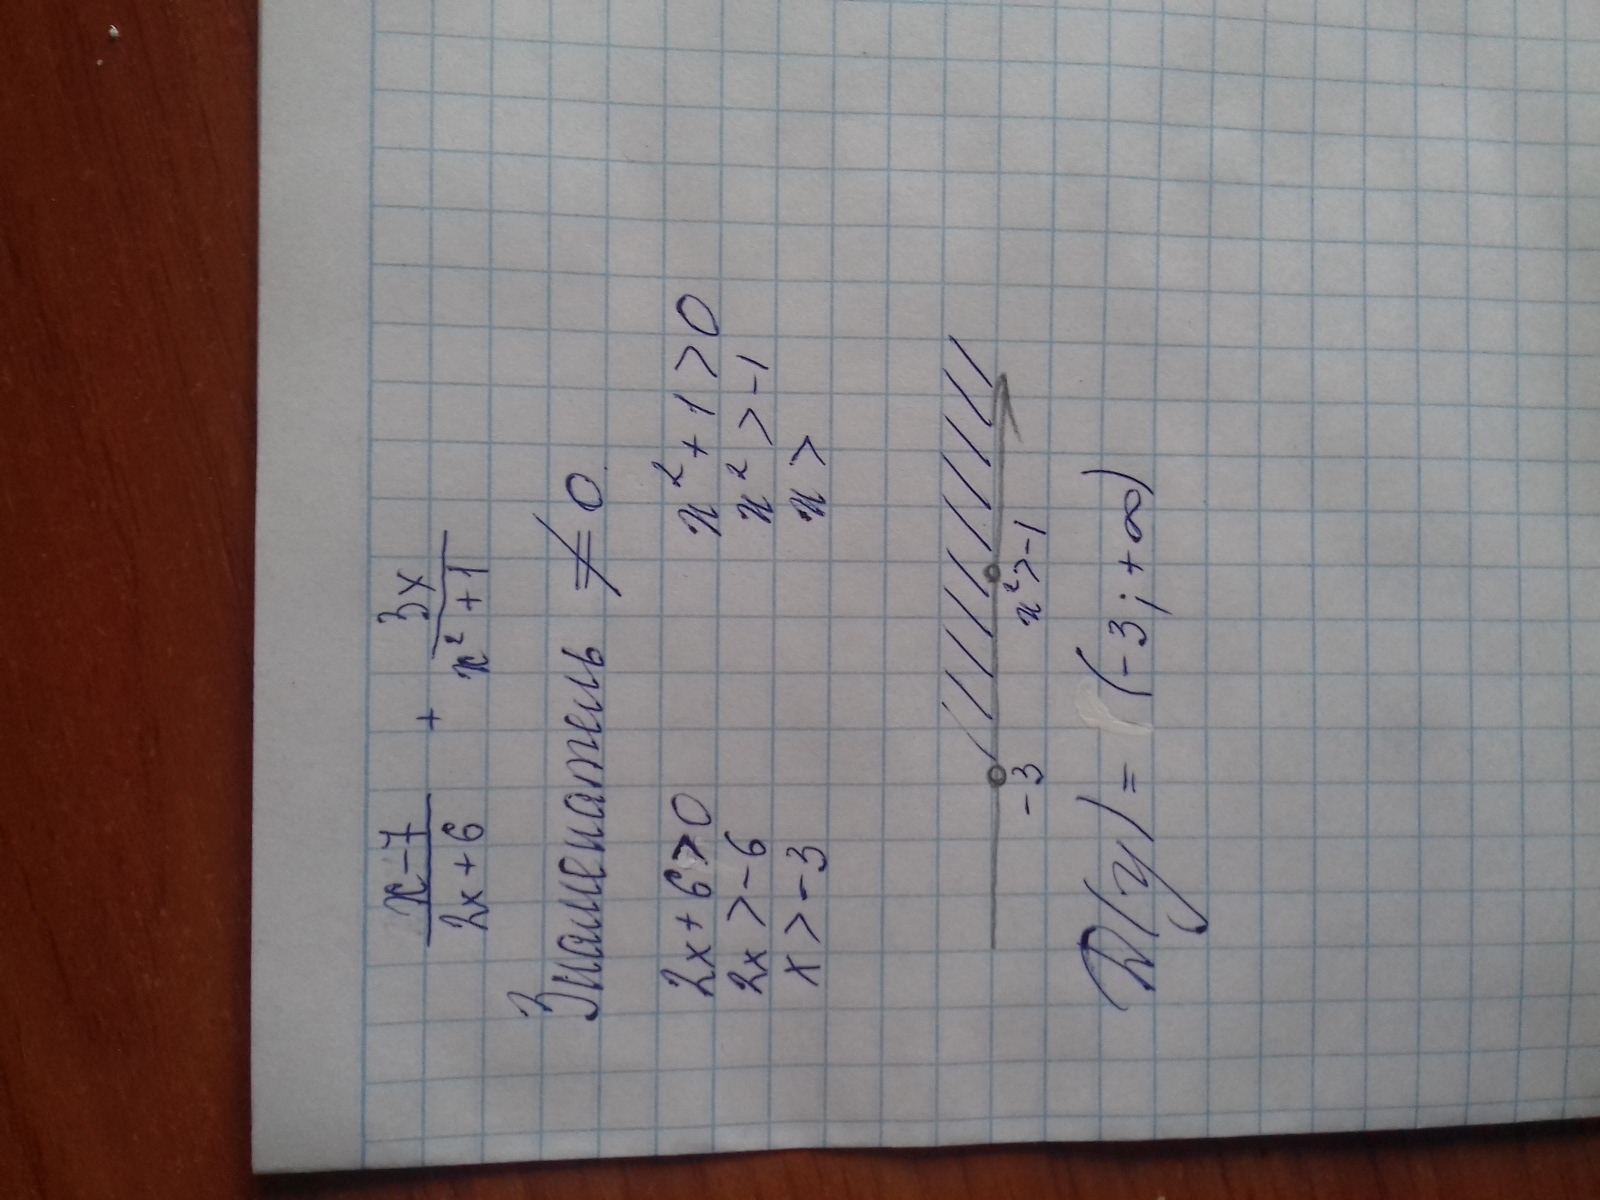 x-7/2x+6 + 3x/x²+1
Знаменатель ≠ 0
2x+6>0 x²+1>0
2x>-6 x²>-1
x>-3 x>
-3 x²>-1
D(y) = (-3;+∞)